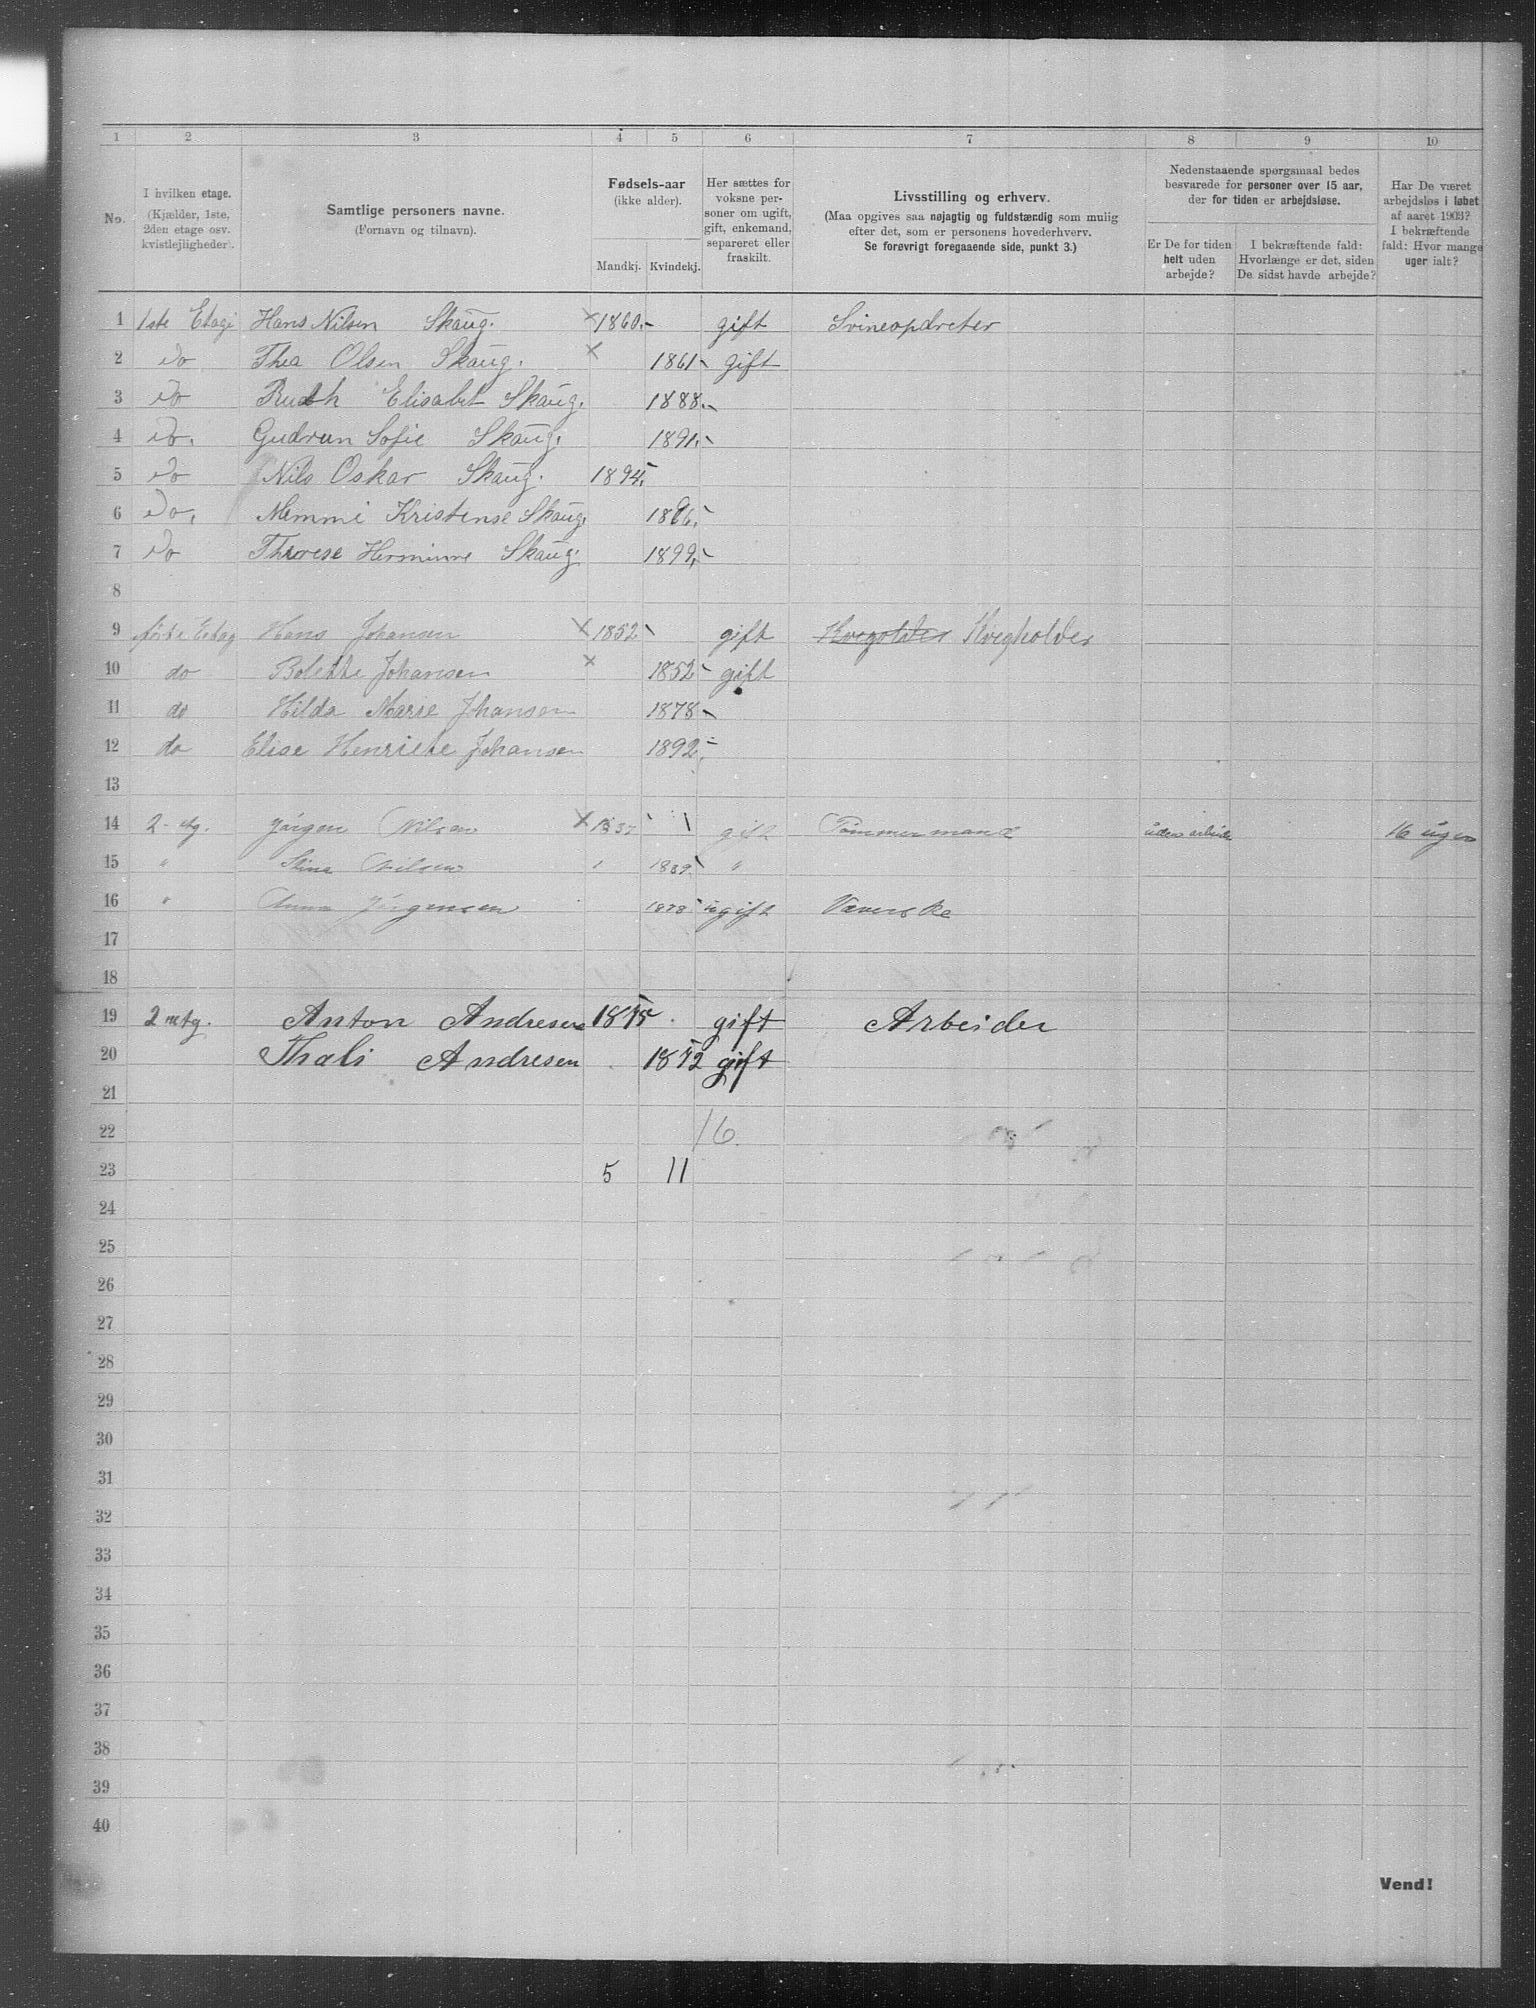 1 2 3 4 5 6 7 8 9 10
No.
I hvilken etage.
(Kjælder, 1ste,
2den etage osv.
kvistlejligheder).
Samtlige personers navne.
(Fornavn og tilnavn).
Fødsels-aar
(ikke alder).
Mandkj. Kvindekj.
Her sættes for
voksne per-
soner om ugift,
gift, enkemand,
separeret eller
fraskilt.
Livsstilling og erhverv.
(Maa opgives saa nøjagtig og fuldstændig som mulig
efter det, som er personens hovederhverv.
Se forøvrigt foregaaende side, punkt 3.)
Nedenstaaende spørgsmaal bedes
besvarede for personer over 15 aar,
der for tiden er arbejdsløse.
Er De for tiden
helt uden
arbejde?
I bekræftende fald:
Hvorlænge er det, siden
De sidst havde arbejde?
Har De været
arbejdsløs i løbet
af aaret 1903?
I bekræftende
fald: Hvor mange
uger ialt?
1 1ste Etage Hans Nilsen Skaug. × 1860 gift Svineopdreter
2 Do Thea Olsen Skaug. × 1861 gift
3 Do Ruth Elisabet Skaug. 1888
4 Do. Gudrun Sofie Skaug. 1891
5 Do Nils Oskar Skaug. 1894
6 Do. Mimmi Kristense Skaug.
7 Do Therese Hermine Skaug 1899
8
9 Etag Hans Johansen × 1852 gift Kvegholder
10 do Bolette Johansen × 1852 gift
11 do Hilda Marie Jhansen 1878
12 do Elise Henriete Johansen 1892
13
14 2 etg. Jørgen Nilsen × 1837 gift Tømmermand uden arbeide 16 uger
15 " Stina Nilsen 1839 "
16 " Anna Jørgensen 1878 ugift Væverske
17
18
19 2 etg. Anton Andresen 1875 gift Arbeider
20 Thali Andresen 1872 gift
21
22 16.
23 5 11
24
25
26
27
28
29
30
31
32
33
34
35
36
37
38
39
40
Vend!